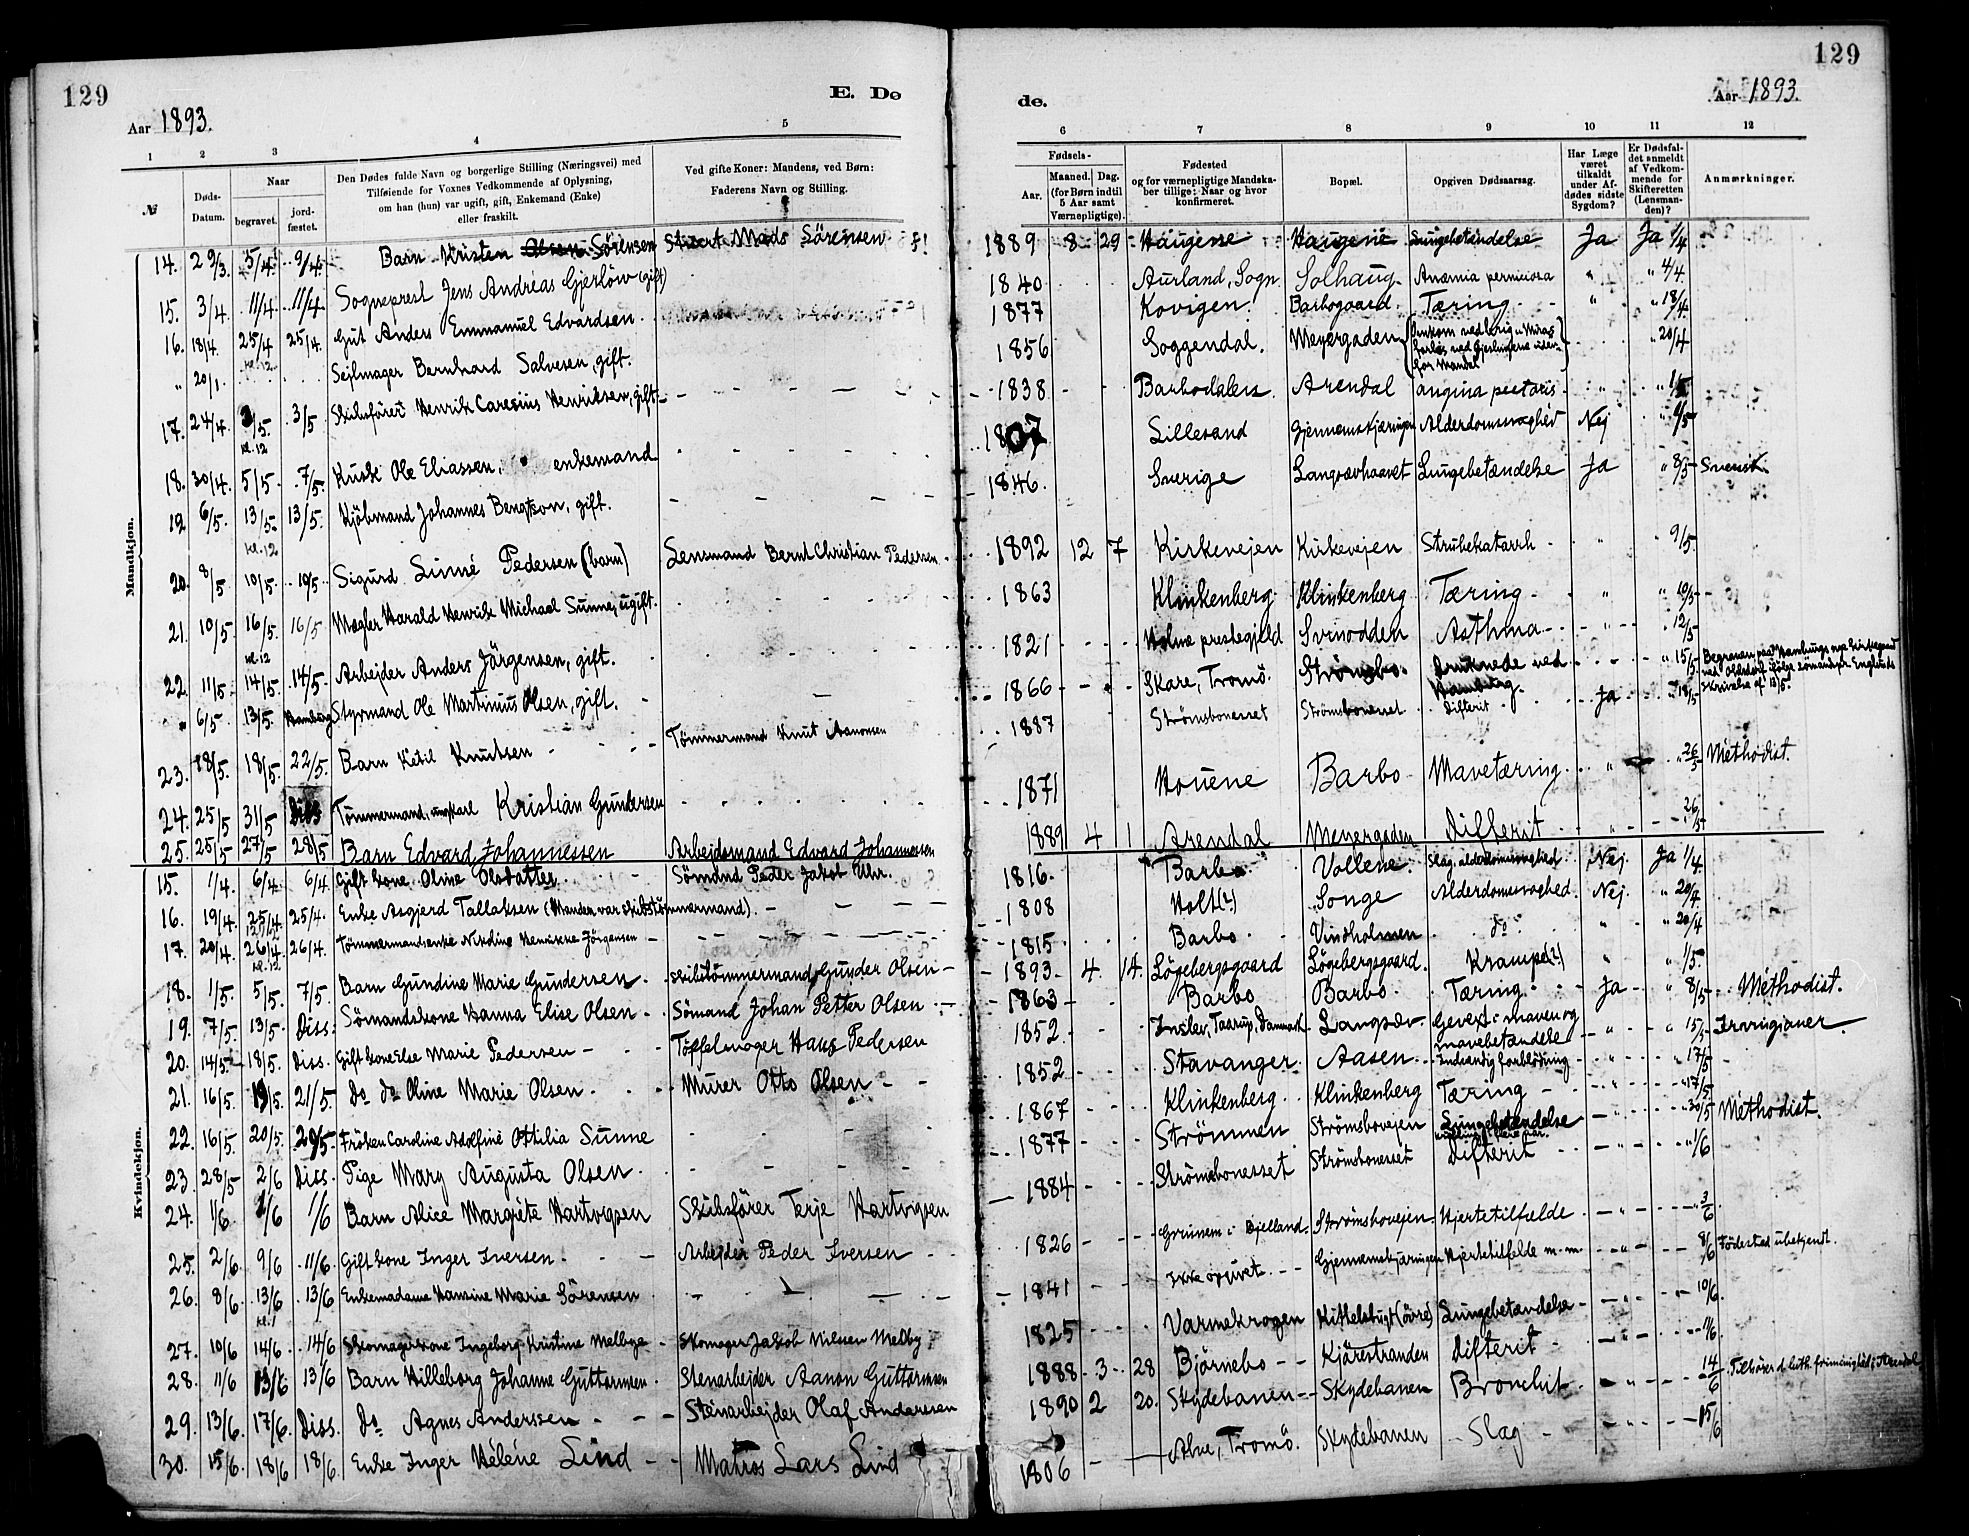 129
E. Dø
Aar 1893.
1 2 3 4 5
№
Døds-Datum.
Naar
begravet.
jord-fæstet.
Den Dødes fulde Navn og borgerlige Stilling (Næringsvei) med
Tilføiende for Voxnes Vedkommende af Oplysning,
om han (hun) var ugift, gift, Enkemand (Enke)
eller fraskilt.
Ved gifte Koner: Mandens, ved Børn:
Faderens Navn og Stilling.
Mandkjøn.
14. 29/3. 5/4. 9/4. Barn Kristen Olsen Sörensen Mads Sörensen
15. 3/4. 11/4. 11/4. Sogneprest Jens Andreas Gjerlöw (gift)
16. 18/4. 25/4 25/4. Gut Anders Emmanuel Edvardsen.
" 20/1. Sejlmager Bernhard Salvesen, gift.
17. 24/4 3/5. 3/5. Skibsfører Henrik Caresius Henriksen, gift.
kl. 12
18. 30/4. 5/5. 7/5. Kusk Ole Eliassen, enkemand
19. 6/5. 13/5. 13/5. Kjöbmand Johannes Bengtson, gift.
kl. 12
20. 8/5. 10/5. 10/5. Sigurd Linné Pedersen (barn) Lensmand Bernt Christian Pedersen.
21. 10/5. 16/5. 16/5. Mægler Harald Henrik Michael Sunne, ugift.
kl. 12
22. 11/5. 14/5. 14/5. Arbejder Anders Jörgensen, gift.
" 6/5. 13/5. Hamborg Styrmand Ole Martinius Olsen, gift.
23. 18/5. 18/5. 22/5. Barn Ketil Knutsen Tömmermand Knut Aanonsen
24. 25/5 31/5 Diss Tömmermand, ungkarl Kristian Gundersen
25. 25/5 27/5 28/5 Barn Edvard Johannessen Arbejdsmand Edvard Johannessen
Kvindekjøn.
15. 1/4. 6/4. 6/4. Gift kone Oline Olsdatter. Sömand Peder Jakob Uhr.
16. 19/4. 25/4 25/4. Enke Asgjerd Tallaksen (Manden var skibstömmermand).
17. 20/4. 26/4. 26/4. Tömmermandsenke Jörgensen
kl. 12
18. 1/5. 5/5. 7/5. Barn Gundine Marie Gundersen. Skibstömmermand Gunder Olsen
19. 7/5. 13/5. Diss. Sömandskone Hanna Elise Olsen Sömand Johan Petter Olsen
20. 14/5. 18/5. Diss. Gift kone Else Marie Pedersen Töffelmager Hans Pedersen
21. 16/5. 19/5. 21/5. do do Oline Marie Olsen. Murer Otto Olsen
22. 16/5. 20/5. 20/5. Fröken Caroline Adolfine Ottilia Sunne
23. 28/5 2/6 Diss. Pige Mary Augusta Olsen.
24. 1/6 1/6 1/6 Barn Alice Margrete Hartvigsen Skibsförer Terje Hartvigsen
25. 2/6 9/6 11/6. Gift kone Inger Iversen. Arbejder Peder Iversen
26. 8/6. 13/6 13/6 Enkemadame Hansine Marie Sörensen
kl. 1
27. 10/6 14/6 14/6 Skomagerkone Ingeborg Kristine Melbye Skomager Jakob Nilssen Melby
28. 11/6 13/6 13/6 Barn Hilleborg Johanne Guttormsen. Stenarbejder Aanon Guttormsen
29. 13/6. 17/6. Diss. do Agnes Anderssen Stenarbejder Olaf Anderssen
30. 15/6. 18/6 18/6. Enke Inger Helene Lind Matros Lars Lind
129
de.
Aar 1893.
6 7 8 9 10 11 12
Fødsels-
Aar.
Maaned. Dag.
(for Børn indtil
5 Aar samt
Værnepligtige).
Fødested
og for værnepligtige Mandska-
ber tillige: Naar og hvor
konfirmeret.
Bopæl.
Opgiven Dødsaarsag.
Har Læge
været
tilkaldt
under Af-
dødes sidste
Sygdom?
Er Dødsfal-
det anmeldt
af Vedkom-
mende for
Skifteretten
(Lensman-
den)?
Anmærkninger.
1889 8 29 Haugene Haugene Lungebetændelse Ja Ja 1/4.
1840 Aurland, Sogn Solhaug Anæmia perniciosa " " 4/4.
1877 Kovigen. Barbogaard. Tæring. " " 18/4
1856 Soggendal. Meyergaden " 20/4
for Mandal
1838 Barbodalen. Arendal angina pectoris " " 1/5
1807 Lillesand Gjennemskjæringen Alderdomssvaghed Nej " 6/5
1846. Sverige Langsævhaavet Lungebetændelse Ja " 8/5 Svensk.
1892 12 7 Kirkevejen Kirkevejen Strubekatarrh " 9/5.
1863 Klinkenberg Klinkenberg Tæring " " 10/5
1821 Holme prestegjeld Svinodden Asthma " " 12/5
1866 Skare, Tromö. Strömsbo. druknede ved Hamborg. " 15/5
Skrivelse af 13/5.
1887 Strömsbonesset Strömsbonesset Difterit Ja " 18/5
1871 Houene Barbo Mavetæring. " " 26/5 Methodist.
1889 4 1 Arendal Meyergaden Difterit " 26/5
1816. Barbo. Vollene. Slag, alderdomssvaghed Nej Ja 1/4.
1808 Holt(?) Songe Alderdomssvaghed. Nej " 20/4
1815 Barbo. Vindholmen do. " " 20/4
1893 4. 14. Lögebergsgaard Lögebergsgaard. Krampe(?) " " 1/5.
1863 Barbo Barbo. Tæring. Ja " 8/5 Methodist.
1852. Taarup, Danmark Langsæv. Gevext i maven og mavebetændelse " " 15/5 Irvingianer.
1852 Stavanger. Aasen. Indvendig forblödning " " 17/5
1867 Klinkenberg. Klinkenberg Tæring " " 17/5
1877 Strömmen Strömsbovejen Lungebetændelse " 30/5 Methodist.
1884 Strömsbonesset Strömsbonesset Difterit " 1/6
1826 Grinnem i Bjelland. Strömsbovejen. Hjertetilfælde " 3/6
1841 ikke opgivet. Gjennemskjæringen Hjertetilfælde m.m. " 8/6 Födested ubekjendt.
1825 Varmekrogen Kittelsbugt (övre) Lungebetændelse " 10/6.
1888 3 28 Björnebo Kjærestranden Difterit " 11/6.
1890 2 20. Skydebanen Skydebanen Bronchit. " 14/6 Tilhörer d. luth. frimenighed i Arendal
1806 Alve, Tromö. Skydebanen Slag " 15/6